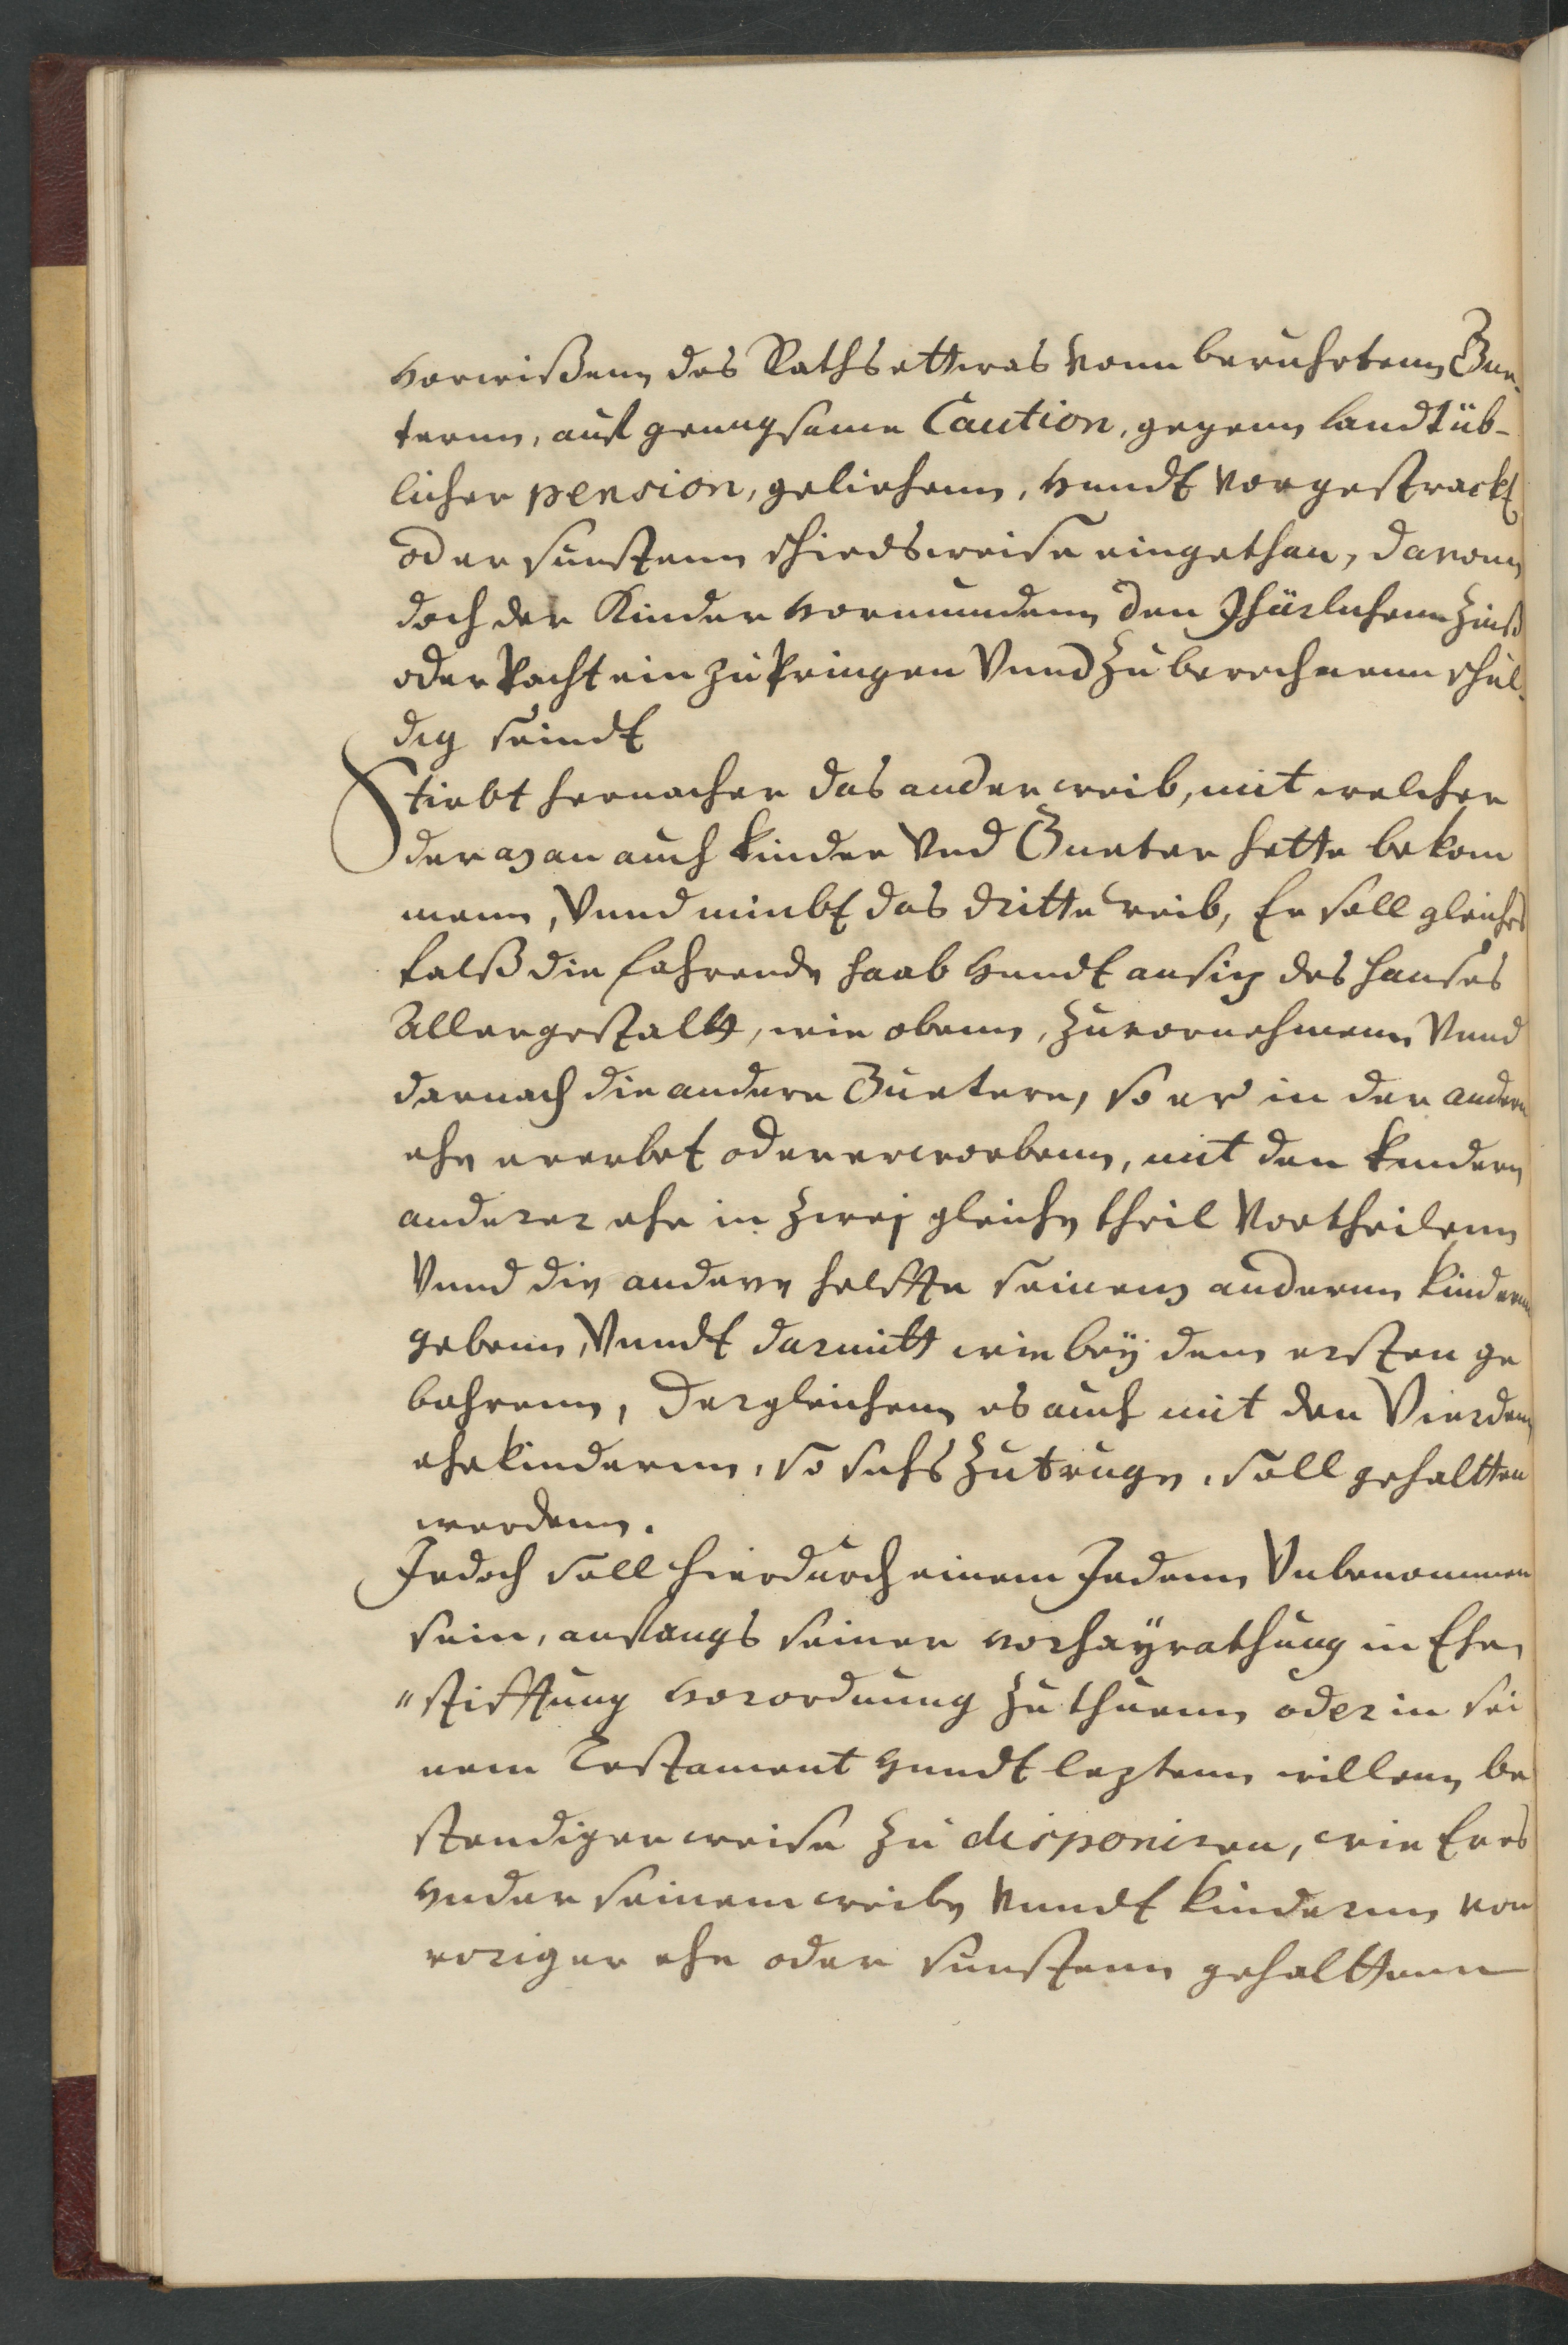 vorwißenn des Raths ettwas vonn beruhrtenn Gue-
ternn, auf genugsame Caution, gegenn landtüb-
licher pension, geliehenn, vnndt vorgestrackt
oder sunstenn schiedsweise eingethan, davonn
doch der Kinder vormundenn den Jhärlichenn Zinß
oder Pacht ein zu Pringen Vnnd Zu berechnenn schul-
dig seindt
Stirbt hernacher das ander weib, mit welcher
der man auch kinder Vnd Gueter hette bekom
menn, Vnnd nimbt das dritte weib, Er soll gleiches
falß die fahrende haab vnndt ansitz des hauses
Allergestallt, wie obenn, Zuvornehmenn Vnnd
darnach die andere Guetere, so er in der andern
ehe ererbet oder erworbenn, mit den kindern
anderer ehe in Zwej gleiche theil Vortheilenn
Vnnd die andere helffte seinenn anderenn kindernn
gebenn, Vnndt darmitt wie beÿ dem ersten ge
bahrenn, Dergleichenn es auch mit den Vierdenn
ehekindernn, so sichs Zutruge, soll gehaltten
werdenn.
Jedoch soll hierdurch einem Jedenn Vnbenommen
sein, anfangs seiner vorhaÿrathung in Ehe
"stifftung vorordnung Zu thuenn oder in sei
nem Testament vnndt leztenn willenn be
stendiger weise Zu disponiren, wie Er es
vnder seinem weibe Vnndt kindernn von
voriger ehe oder sunstenn gehalttenn